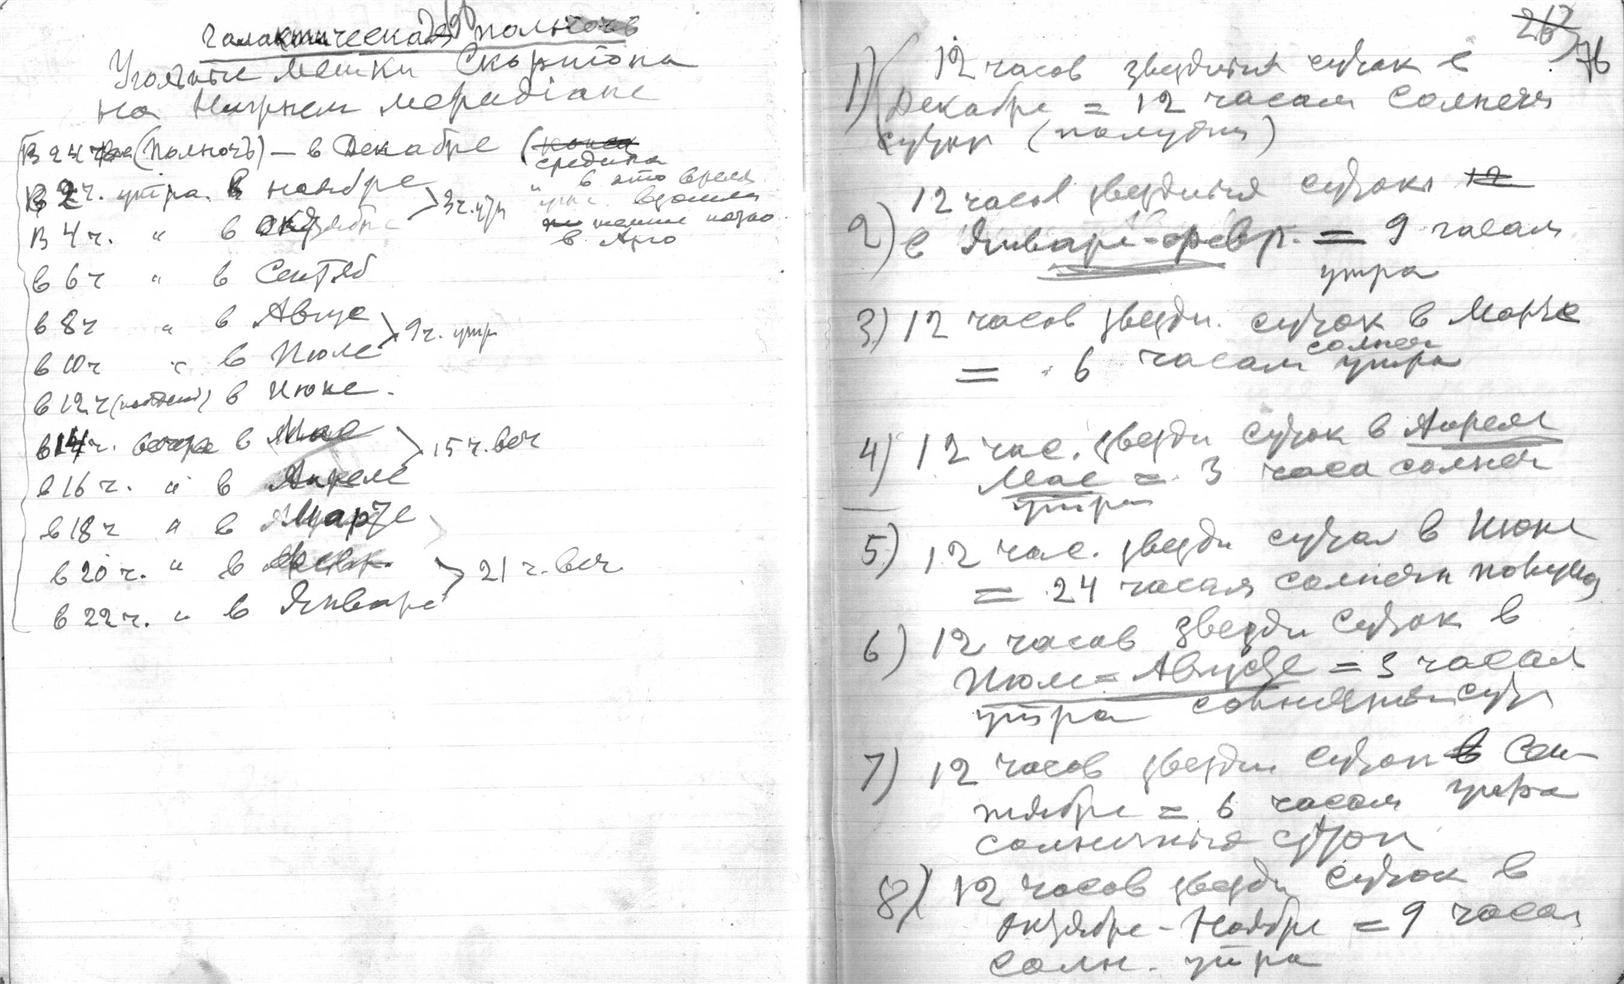 Галактическая полночь
Угольные мешки Скорпиона
на нижнем меридиане
В 24 (полночь) — в Декабре (конец
средина
В 2 ч. утра. в ноябре 3 ч. утр " в это время
В 4 ч. " в октябре
в Арго
в 6 ч " в Сентяб
в 8 ч " в Авгус 9 ч. утр
в 10 ч " в Июле
в 12 ч (полдень) в Июне.
в 14 ч. вечера в Мае 15 ч. веч
в 16 ч. " в Апреле
в 18 ч " в Марте
в 20 ч. " в 21 ч. веч
в 22 ч. " в Январе
76
1) 12 часов звездных суток в
Декабре = 12 часам солнечн
суток (полудни)
12 часов звездных суток 12
2) в Январе-февр. = 9 часам
утра
3) 12 часов звездн. суток в Марте
= 6 часам солнеч утра
4) 12 час. звездн суток в Апреле
Мае = 3 часа солнеч
утра
5) 12 час. звездн суток в Июне
= 24 часам солнечн
6) 12 часов звездн суток в
Июле = Августе = 3 часам
утра солнечных сут
7) 12 часов звездн суток в Сен-
тябре = 6 часам утра
солнечных суток
8) 12 часов звездн суток в
Октябре - Ноябре = 9 часам
солн. утра